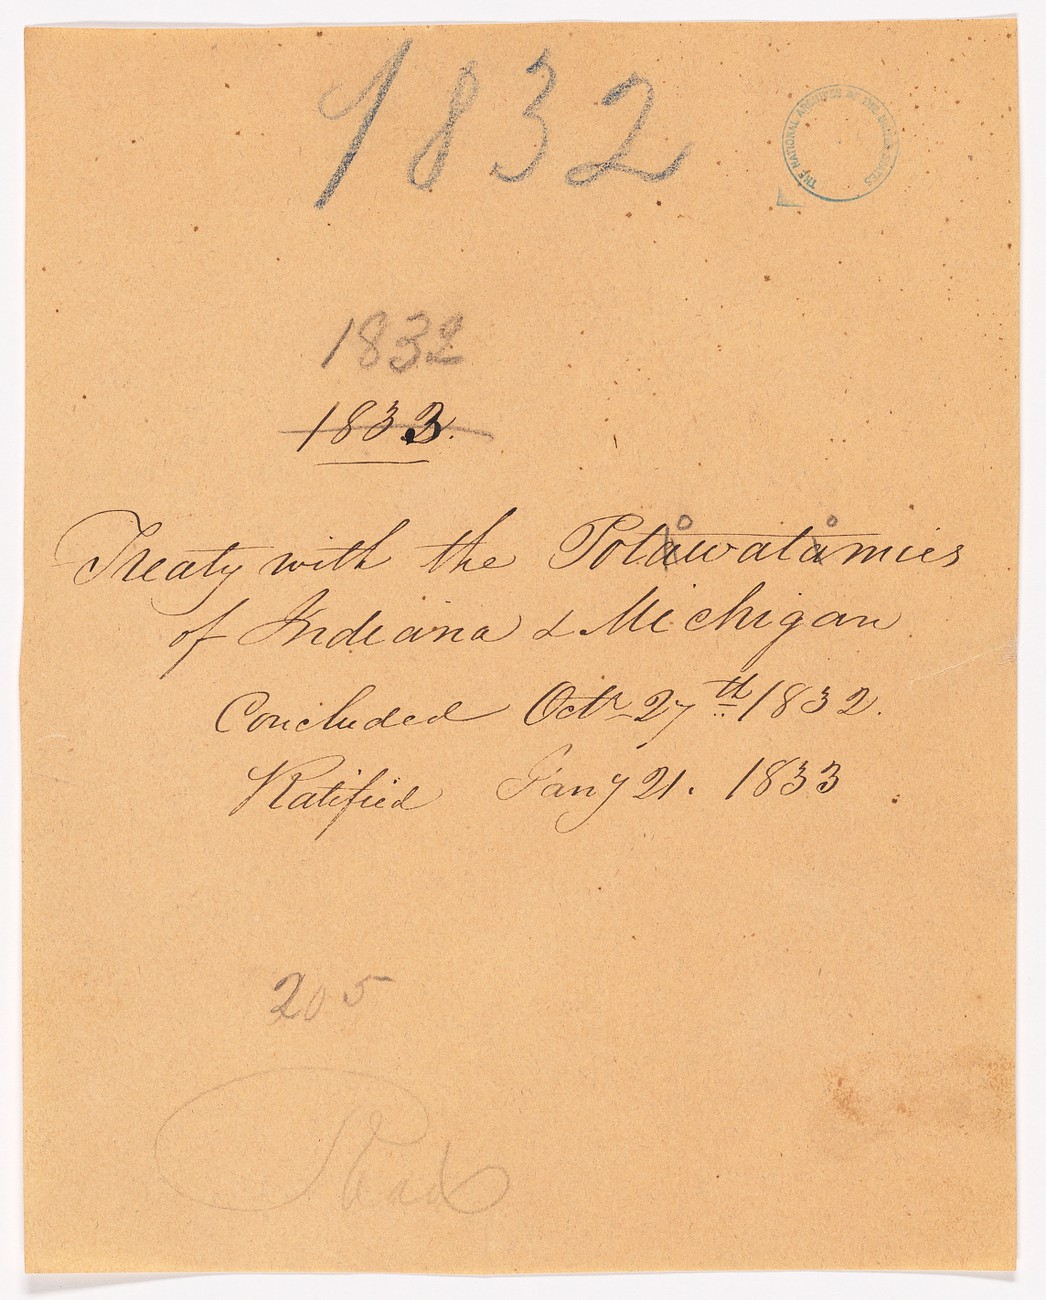 1832
THE NATIONAL ARCHIVES OF THE UNITED STATES
1832
1833.
Treaty with the Potawatamies
o o
of Indiana & Michigan
Concluded Octr 27th 1832.
Ratified Jany 21. 1833
205
Read